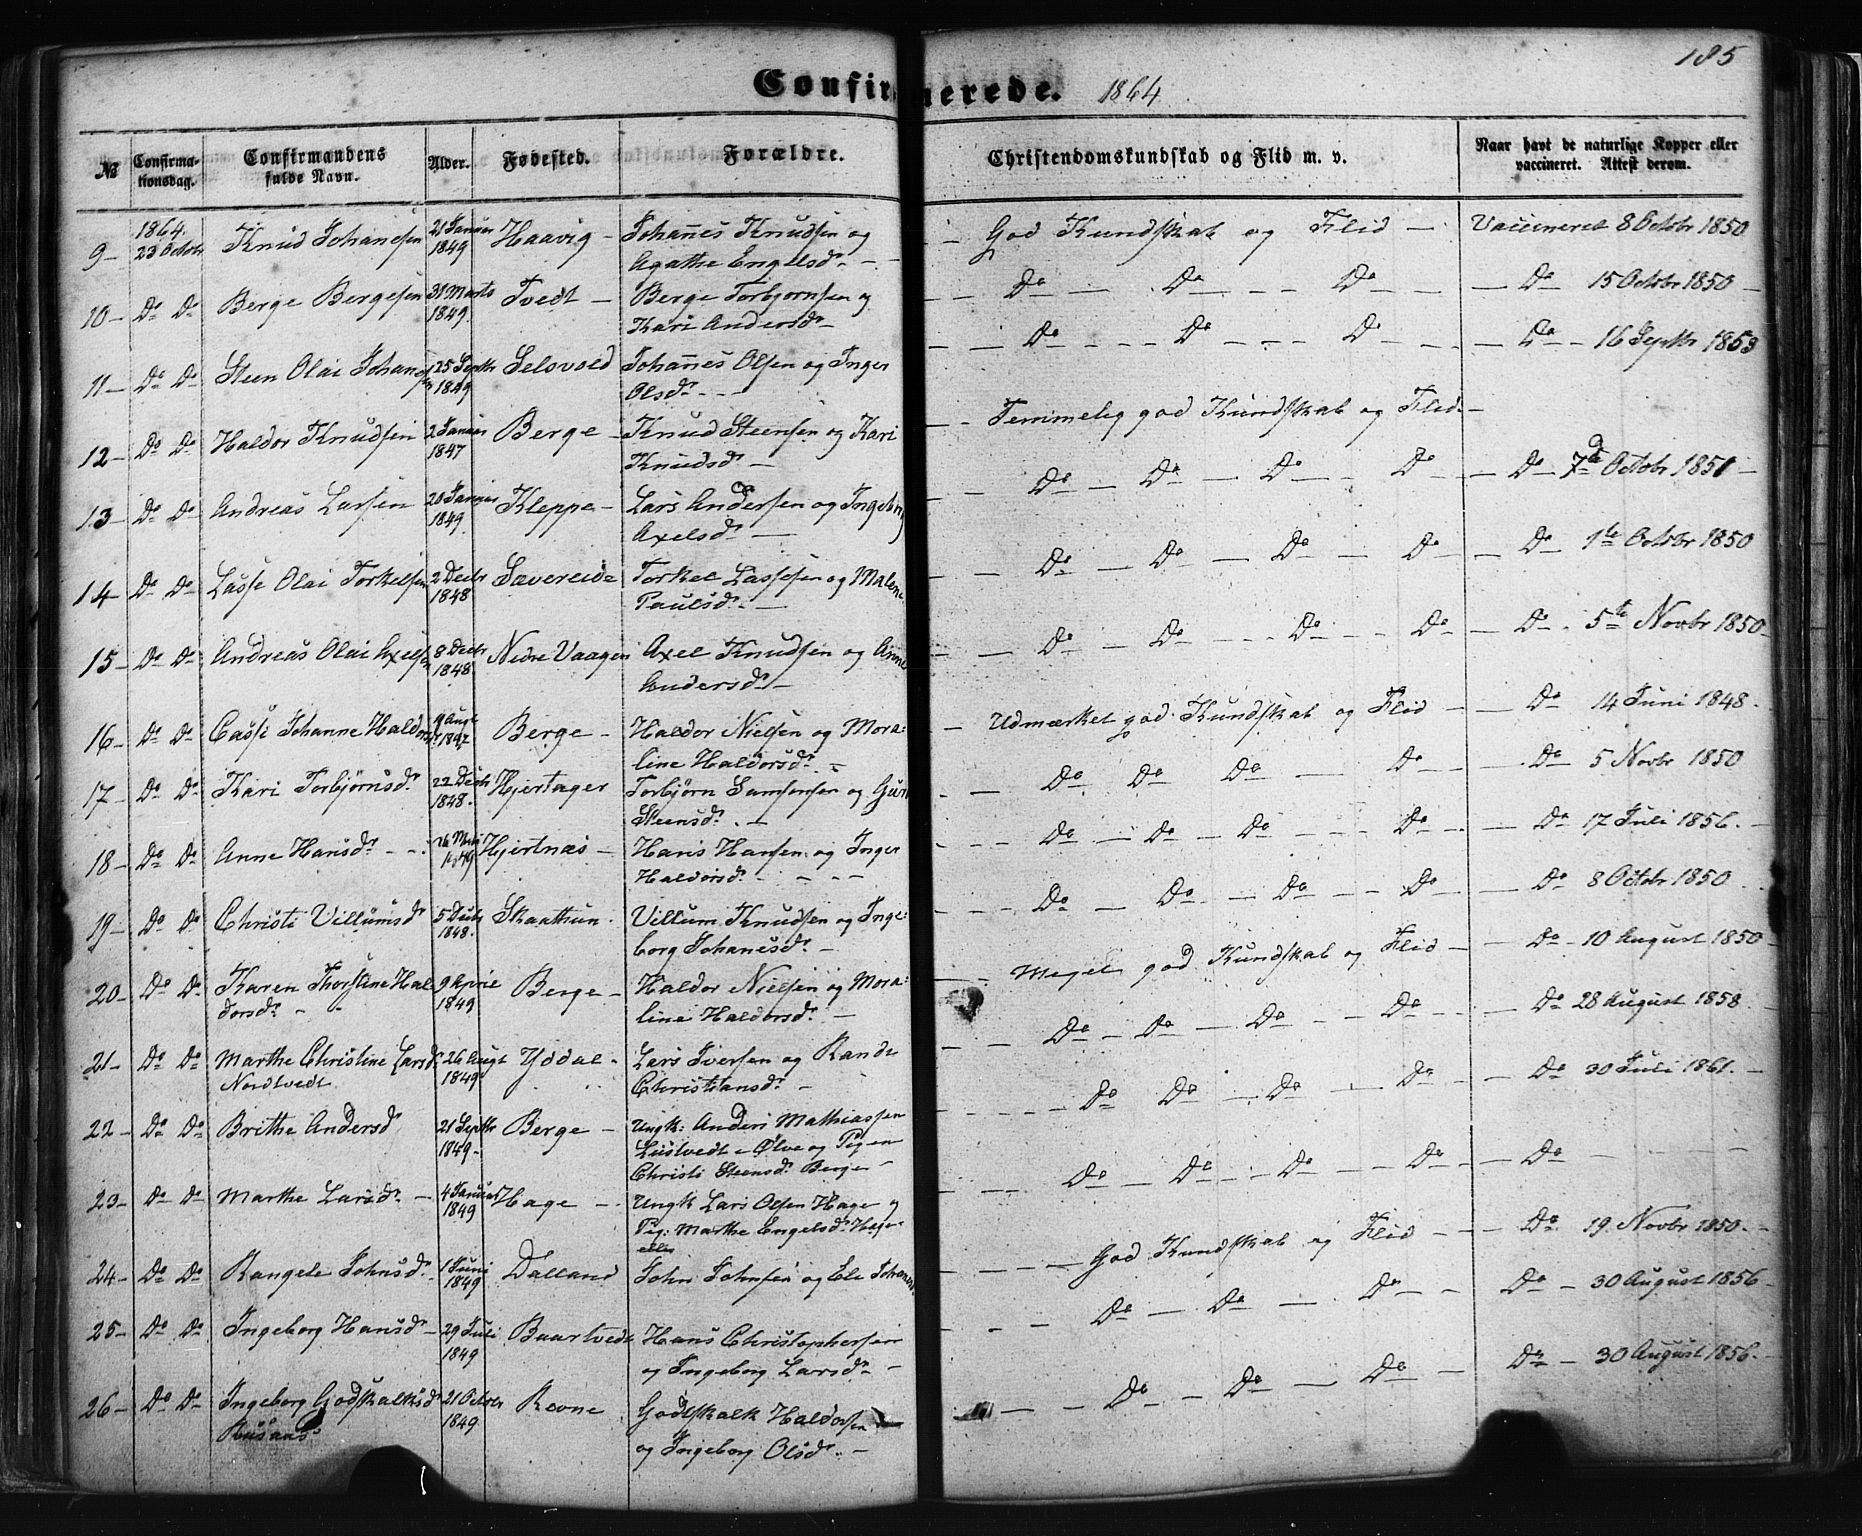 185
Confirmerede. 1864
№
Confirmationsdag.
Confirmandens fulde Navn.
Alder.
Fødested.
Forældre.
Christendomskundskab og Flid m. v.
Naar havt de naturlige Kopper eller vaccineret. Attest derom.
9 – 1864. 23 Octobr Knud Johanesen 21 Januar 1849 Haavig – Johanes Knudsen og – God Kundskab og Flid – Vaccineret 8 Octobr 1850
Agathe Engelsdr. –
10 – Do Do Berge Bergesen 31 Marts 1849. Tvedt – Berge Torbjørnsen og – Do – Do – Do – Do 15 Octobr 1850 –
Kari Andersdr –
11 – Do Do Steen Olai Johanesen 25 Septbr 1849 Selsvold Johannes Olsen og Inger – Do – Do – Do – Do – 16 Septbr 1853
Olsdr. –
12 – Do Do Haldor Knudsen 2 Januar 1847 Berge – Knud Steensen og Kari – Temmelig god Kundskab og Flid. –
Knudsdr –
13 – Do Do Andreas Larsen 20 Januar 1849 Kleppe – Lars Andersen og Ingeborg – Do – Do – Do – Do – Do – 7de Octobr 1851 –
Axelsdr –
14 – Do Do Lasse Olai Torkelsen 2 Decbr 1848 Sævereide Torkel Lassesen og Malene – Do – Do – Do – Do – Do – 1te Octobr 1850
Paulsdr. –
15 – Do Do Andreas Olai Axelsen 8 Decbr 1848 Nedre Vaagen Axel Knudsen og Anne – Do – Do – Do – Do – Do – 5te Novbr 1850 –
Andersdr –
16 – Do Do Johanne Haldorsdr Berge – Haldor Nielsen og Mora= – Udmærket god Kundskab og Flid – Do – 14 Juni 1848.
line Haldorsdr. –
17 – Do Do Kari Torbjørnsdr 22 Decbr 1848. Hjertager Torbjørn Samsonsen og Guri – Do Do Do – Do – Do – 5 Novbr 1850
Steensdr. –
18 – Do Do Anne Hansdr – Hjertnæs – Hans Hansen og Inger – Do – Do – Do – Do – Do 17 Juli 1856. –
Haldorsdr. –
19 – Do Do Christi Villumsdr 5 Decbr 1848. Skaathun Villum Knudsen og Inge= – Do – Do – Do – Do – Do – 8 Octobr 1850
borg Johanesdr. –
20 – Do Do Karen Thorstine Hal= 9 April 1849 Berge – Haldor Nielsen og Mora= – Meget god Kundskab og Flid – Do – 10 August 1850
dorsdr. line Haldorsdr. –
21 – Do Do Marthe Christine Larsdr 26 Augt 1849 Yddal – Lars Iversen og Rande – Do – Do – Do – Do – Do – 28 August 1858
Nordtvedt Christiansdr. –
22 – Do Do Brithe Andersdr 21 Septbr 1849 – Berge – Ungk: Anders Mathiassen – Do Do – Do – Do – Do – 30 Juli 1861. –
i Ølve og Pigen
Christi Steensdr. Berge –
23 – Do Do Marthe Larsdr. – 4 Januar 1849 Hage – Ungk Lars Olsen Hage og – Do – Do – Do – Do – Do –
Pig: Marthe Engelsdr. Hage
24 – Do Do Rangele Johnsdr. 1 Juni 1849 Dalland John Johnsen og Eli Johanesdr – God Kundskab og Flid – Do – 19. Novbr 1850. –
25 – Do Do Ingeborg Hansdr – 29 Juli 1849 Baartvedt Hans Christophersen – Do – Do – Do – Do – 30 August 1856 –
og Ingeborg Larsdr –
26 – Do Do Ingeborg Godskalksdr 21 Octobr 1849 Revne Godtskalk Haldorsen – Do – Do – Do – Do – 30 August 1856. –
Røsaas og Ingeborg Olsdr. –